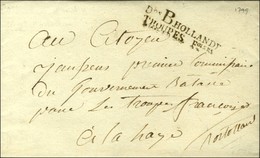 Don B HOLLANDE
TROUPES
1799
au Citoyen
premier Commissaire
du Gouvernement Batave
pour les Troupes françaises
a la haye